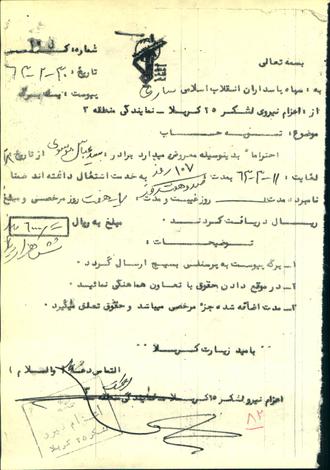 بسمه تعالی
شماره:
تاریخ: ۳۰-۲-۶۳
پیوست:
به: سپاه پاسداران انقلاب اسلامی ساری
از: اعزام نیروی لشکر ۲۵ کربلا - نمایندگی منطقه ۳
موضوع: تسویه حساب
احتراما" بدینوسیله معروض میدارد برادر: سید عباس موسوی از تاریخ
لغایت: بمدت ۱۰۷ روز به خدمت اشتغال داشته اند ضمنا
نامبرده: مدت: روز غیبت و مدت هفت روز مرخصی و مبلغ
ریال دریافت کردند. مبلغ به ریال ۶۰۰۰
شش هزار ریال
توضیحات:
۱- برگه پیوست به پرسنلی بسیج ارسال گردد.
۲- در موقع دادن حقوق با تعاون هماهنگی نمائید.
۳- مدت اضافه شده جزء مرخصی میباشد و حقوق تعلق میگیرد.
بامید زیارت کربلا
التماس دعا (والسلام)
اعزام نیرو لشکر ۲۵ کربلا - نمایندگی منطقه ۳
اعزام نیرو
لشکر ۲۵ کربلا
۸۲